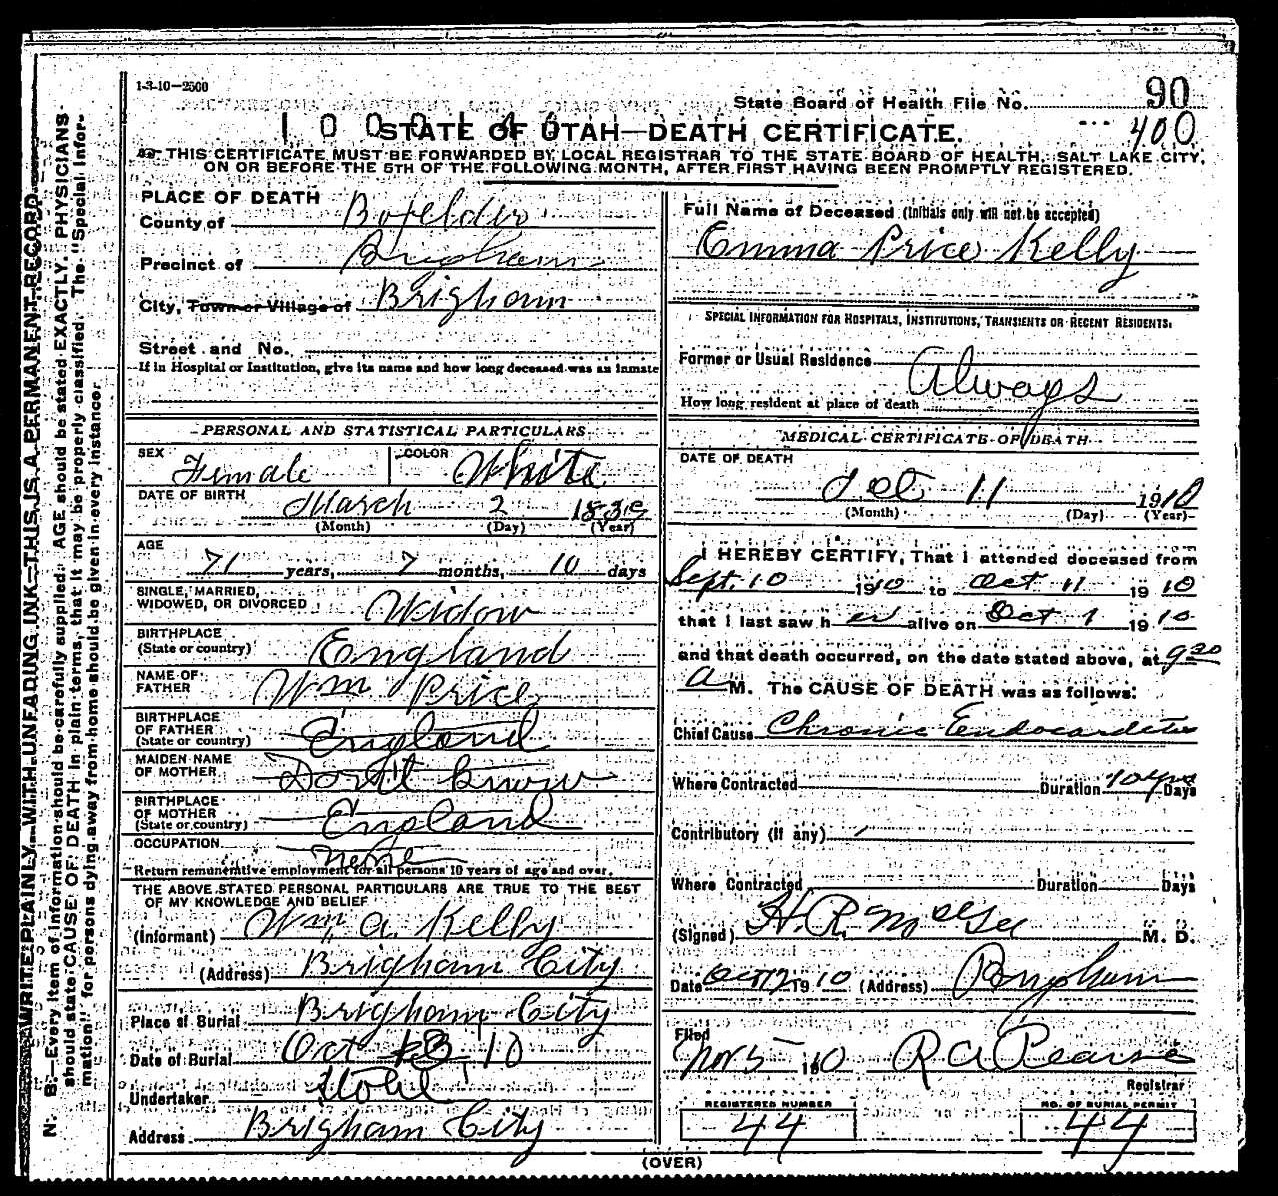 1-3-10-2500
State Board of Health File No. 90
400
STATE OF UTAH—DEATH CERTIFICATE.
THIS CERTIFICATE MUST BE FORWARDED BY LOCAL REGISTRAR TO THE STATE BOARD OF HEALTH, SALT LAKE CITY,
ON OR BEFORE THE 5TH OF THE FOLLOWING MONTH, AFTER FIRST HAVING BEEN PROMPTLY REGISTERED.
WRITE PLAINLY WITH UNFADING INK—THIS IS A PERMANENT RECORD
N. B.—Every item of information should be carefully supplied. AGE should be stated EXACTLY. PHYSICIANS
should state CAUSE OF DEATH in plain terms, that it may be properly classified. The "Special Infor-
mation" for persons dying away from home should be given in every instance.
PLACE OF DEATH
County of Boxelder
Precinct of Brigham
City, Town or Village of Brigham
Street and No.
If in Hospital or Institution, give its name and how long deceased was an inmate
PERSONAL AND STATISTICAL PARTICULARS
SEX Female COLOR White
DATE OF BIRTH March 2 1839
(Month) (Day) (Year)
AGE 71 years, 7 months, 10 days
SINGLE, MARRIED,
WIDOWED, OR DIVORCED Widow
BIRTHPLACE
(State or country) England
NAME OF
FATHER Wm Price
BIRTHPLACE
OF FATHER
(State or country) England
MAIDEN NAME
OF MOTHER Don't know
BIRTHPLACE
OF MOTHER
(State or country) England
OCCUPATION None
Return remunerative employment for all persons 10 years of age and over.
THE ABOVE STATED PERSONAL PARTICULARS ARE TRUE TO THE BEST
OF MY KNOWLEDGE AND BELIEF
(Informant) Wm. A. Kelly
(Address) Brigham City
Place of Burial Brigham City
Date of Burial Oct 13 10
Undertaker
Address Brigham City
Full Name of Deceased (Initials only will not be accepted)
Emma Price Kelly
SPECIAL INFORMATION FOR HOSPITALS, INSTITUTIONS, TRANSIENTS OR RECENT RESIDENTS.
Former or Usual Residence
Always
How long resident at place of death
MEDICAL CERTIFICATE OF DEATH
DATE OF DEATH
Oct 11 1910
(Month) (Day) (Year)
I HEREBY CERTIFY, That I attended deceased from
Sept. 10 1910 to Oct 11 1910
that I last saw her alive on Oct 1 1910
and that death occurred, on the date stated above, at 9 20
A M. The CAUSE OF DEATH was as follows:
Chief Cause Chronic Endocarditis
Where Contracted Duration yrs Days
Contributory (if any)
Where Contracted Duration Days
(Signed) H. R. McGee M. D.
Date Oct 12 1910 (Address) Brigham
Filed
Nov 5 1910 R A Pearse
Registrar
REGISTERED NUMBER
44
NO. OF BURIAL PERMIT
44
(OVER)